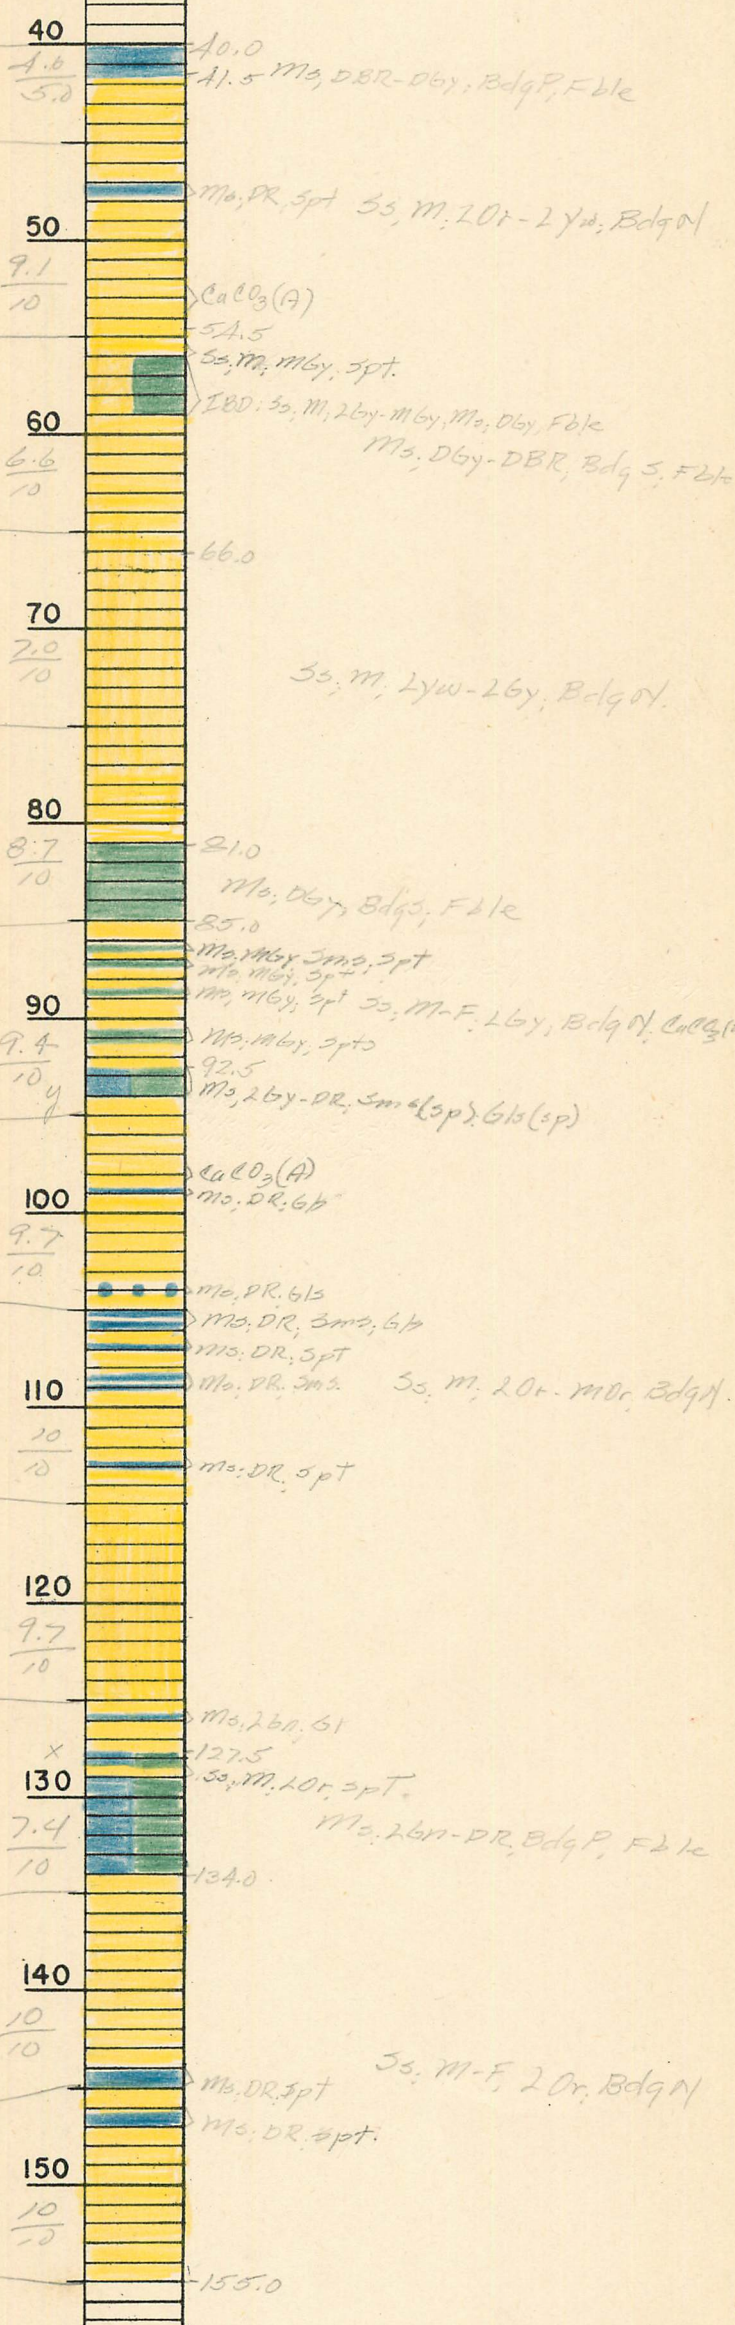 40
4.0
5.0
40.0
41.5 Ms, DBR-DGy; BdgP, Fble
Ms; DR, Spt
Ss, M; LOr-LYw; BdgN
50
9.1
10
CaCO3(A)
54.5
Ss; M; MGy; Spt.
IBD: Ss, M; LGy-MGy, Ms; DGy, Fble
60
Ms; DGy-DBR, Bdg S, Fble
6.6
10
66.0
70
7.0
10
Ss; M; LYw-LGy; BdgN.
80
8.7
10
81.0
Ms; DGy, BdgS; Fble
85.0
Ms. MGy Sms. Spt
Ms. MGy, Spt
Ms, MGy; Spt
Ss; M-F; LGy, BdgN. CaCO3
90
9.4
10
Ms; MGy, Spts
92.5
y
Ms, LGy-DR; Sms(sp); Gls(sp)
CaCO3(A)
100
Ms; DR; Gb
9.7
10
Ms; DR. Gls
Ms; DR; Sms; Gb
Ms: DR; Spt
Ms; DR; Sms.
Ss; M; LOr-MOr, BdgN.
110
10
10
Ms; DR, Spt
120
9.7
10
Ms; LGn; Gl
x
127.5
Ss; M. LOr, Spt.
130
Ms. LGn-DR, BdgP, Fble
7.4
10
134.0
140
10
10
Ss; M-F, LOr; BdgN
Ms; DR. Spt
Ms; DR Spt.
150
10
10
155.0